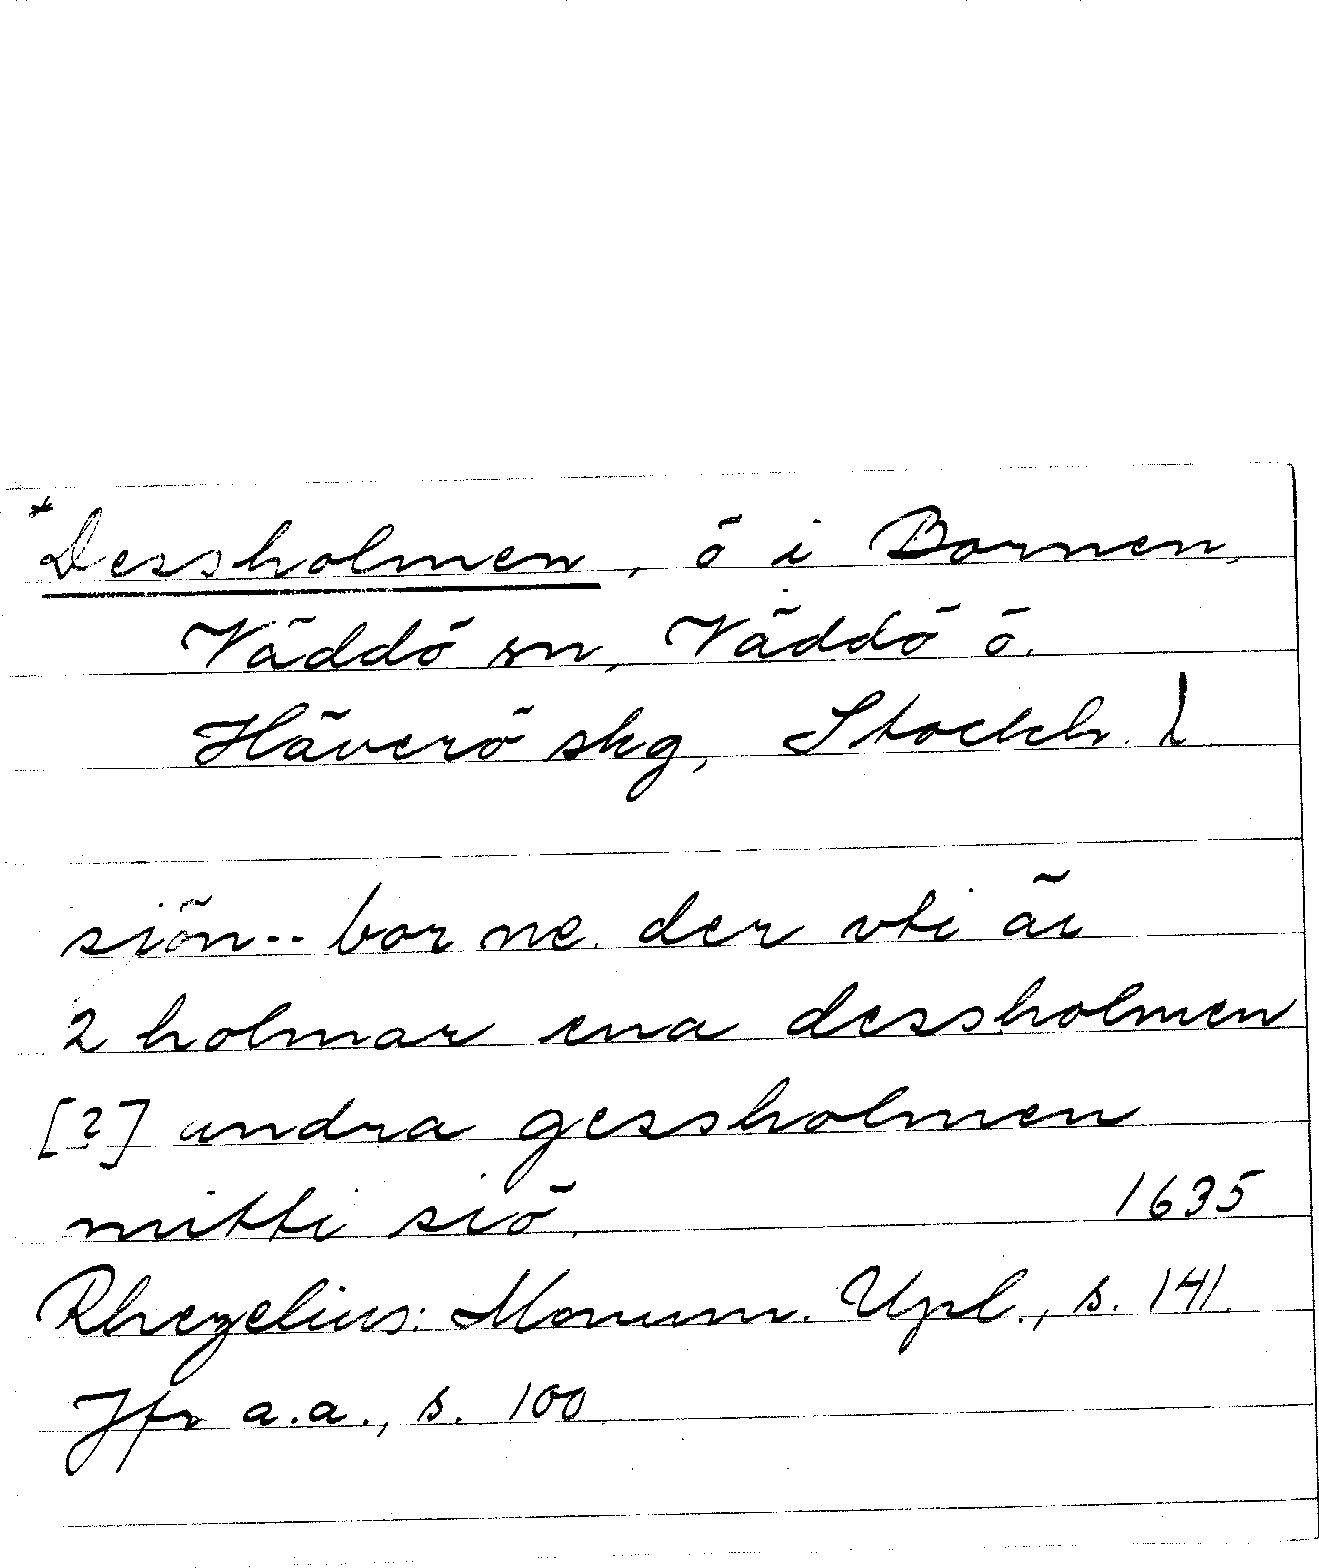 *Dessholmen, ö i Bornen,
Väddö sn, Väddö ö.
Häverö skg, Stockh. l
siön.. bor ne. der vti är
2 holmar ena dessholmen
[?] andra gessholmen
mitti siö.
1635
Rhezelius: Monum. Upl., s. 141.
Jfr a.a., s. 100